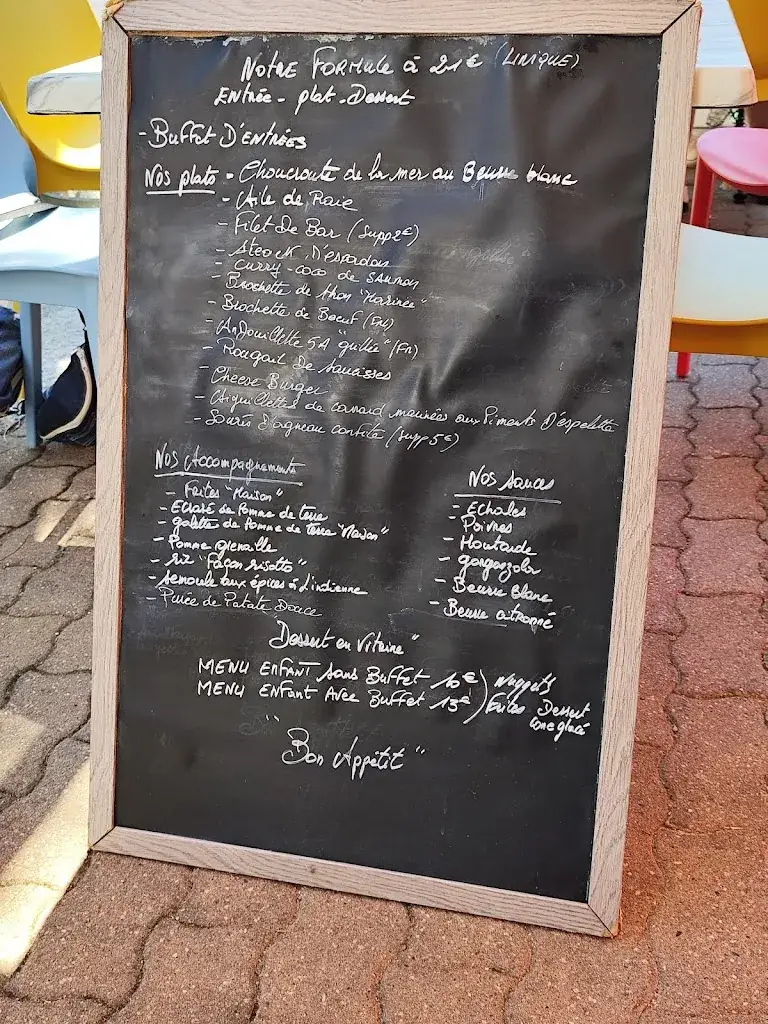 Notre Formule à 21€ (UNIQUE)
Entrée - plat - Dessert
- Buffet D'Entrées
Nos plats - Choucroute de la mer au Beurre blanc
- Aile de Raie
- Filet De Bar (supp 2€)
- Steack D'espadon
- Curry-coco de Saumon
- Brochette de thon "Marinée"
- Brochette de Boeuf (FR)
- Andouillette 5A "grillée" (FR)
- Rougail de saucisses
- Cheese Burger
- Aiguillettes de canard marinées aux Piments D'espelette
- Souris D'agneau confite (supp 5€)
Nos Accompagnements
- Frites "Maison"
- Ecrasé de Pomme de terre
- galette de Pomme de terre "Maison"
- Pomme grenaille
- riz "Façon risotto"
- semoule aux épices à L'indienne
- Purée de Patate Douce
Nos sauces
- Echalotes
- Poivres
- Moutarde
- gorgonzola
- Beurre blanc
- Beurre citronné
"Dessert en Vitrine"
MENU ENFANT sans Buffet 10€) Nuggets
MENU ENFant Avec Buffet 13€) frites Dessert
cone glacé
"Bon Appétit"